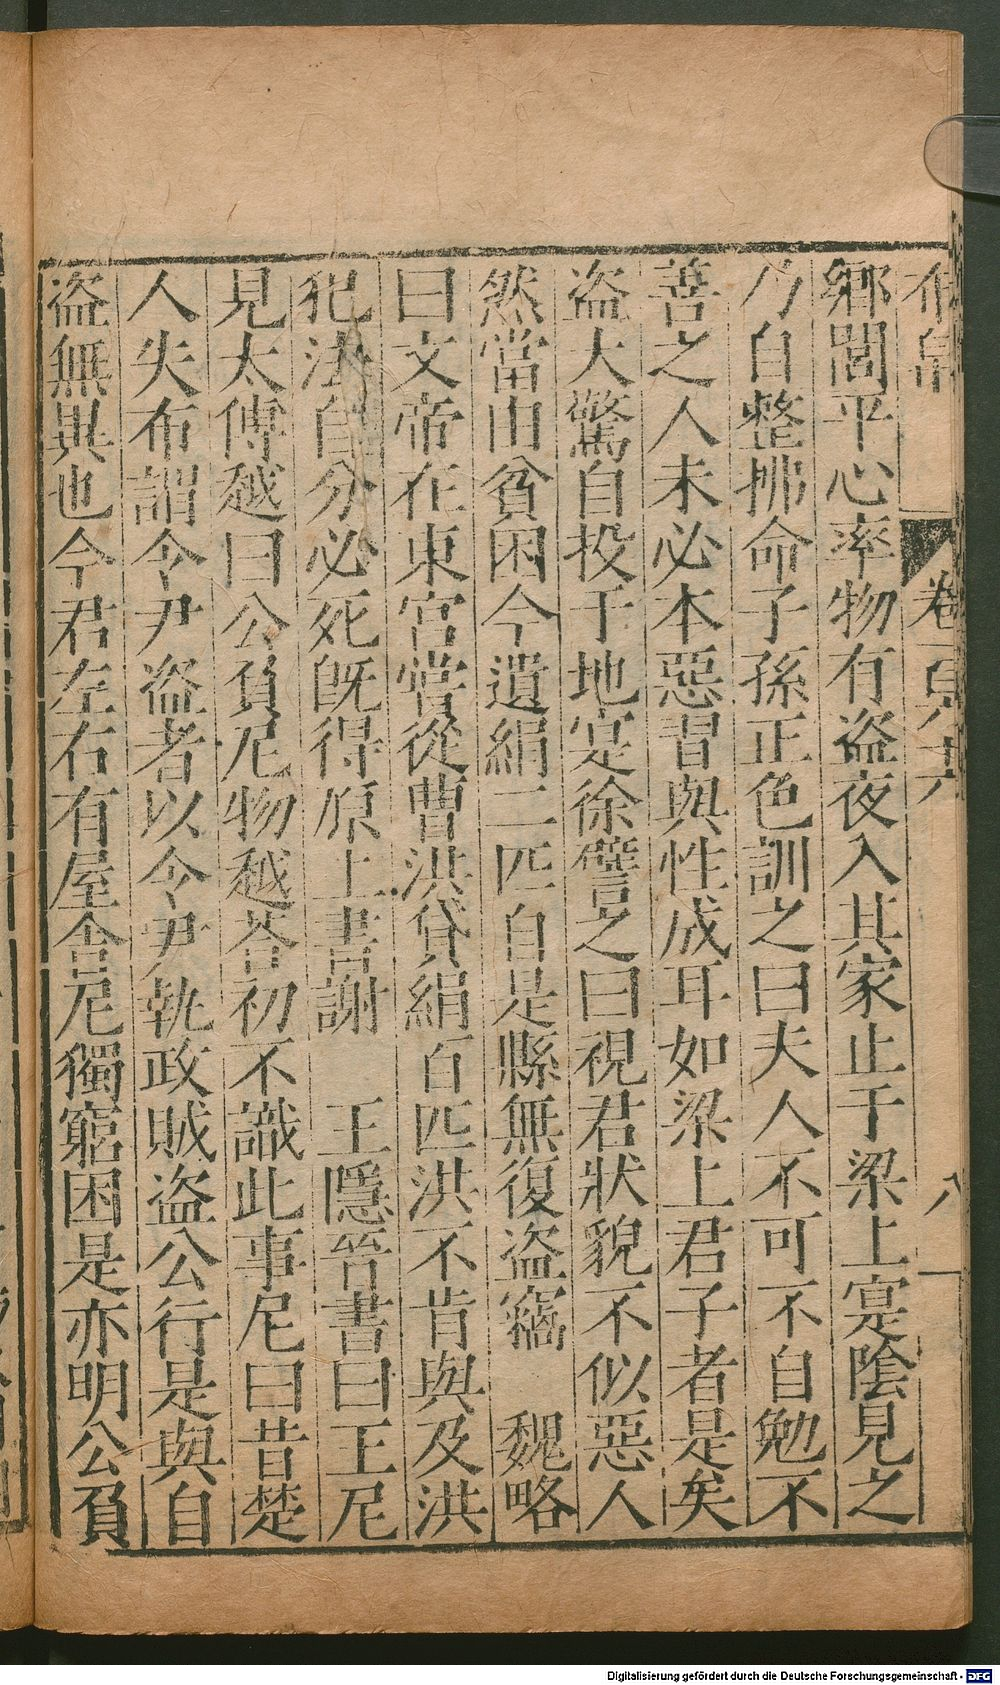 布帛 卷一百八十六 八
鄉閭平心率物有盜夜入其家止于梁上寔陰見之
乃自整拂命子孫正色訓之曰夫人不可不自勉不
善之人未必本惡習與性成耳如梁上君子者是矣
盜大驚自投于地寔徐譬之曰視君狀貌不似惡人
然當由貧困今遺絹二匹自是縣無復盜竊 魏略
曰文帝在東宮嘗從曹洪貸絹百匹洪不肯與及洪
犯法自分必死既得原上書謝 王隱晉書曰王尼
見太傅越曰公負尼物越荅初不識此事尼曰昔楚
人失布謂令尹盜者以令尹執政賊盜公行是與自
盜無異也今君左右有屋舍尼獨窮困是亦明公負
Digitalisierung gefördert durch die Deutsche Forschungsgemeinschaft - DFG